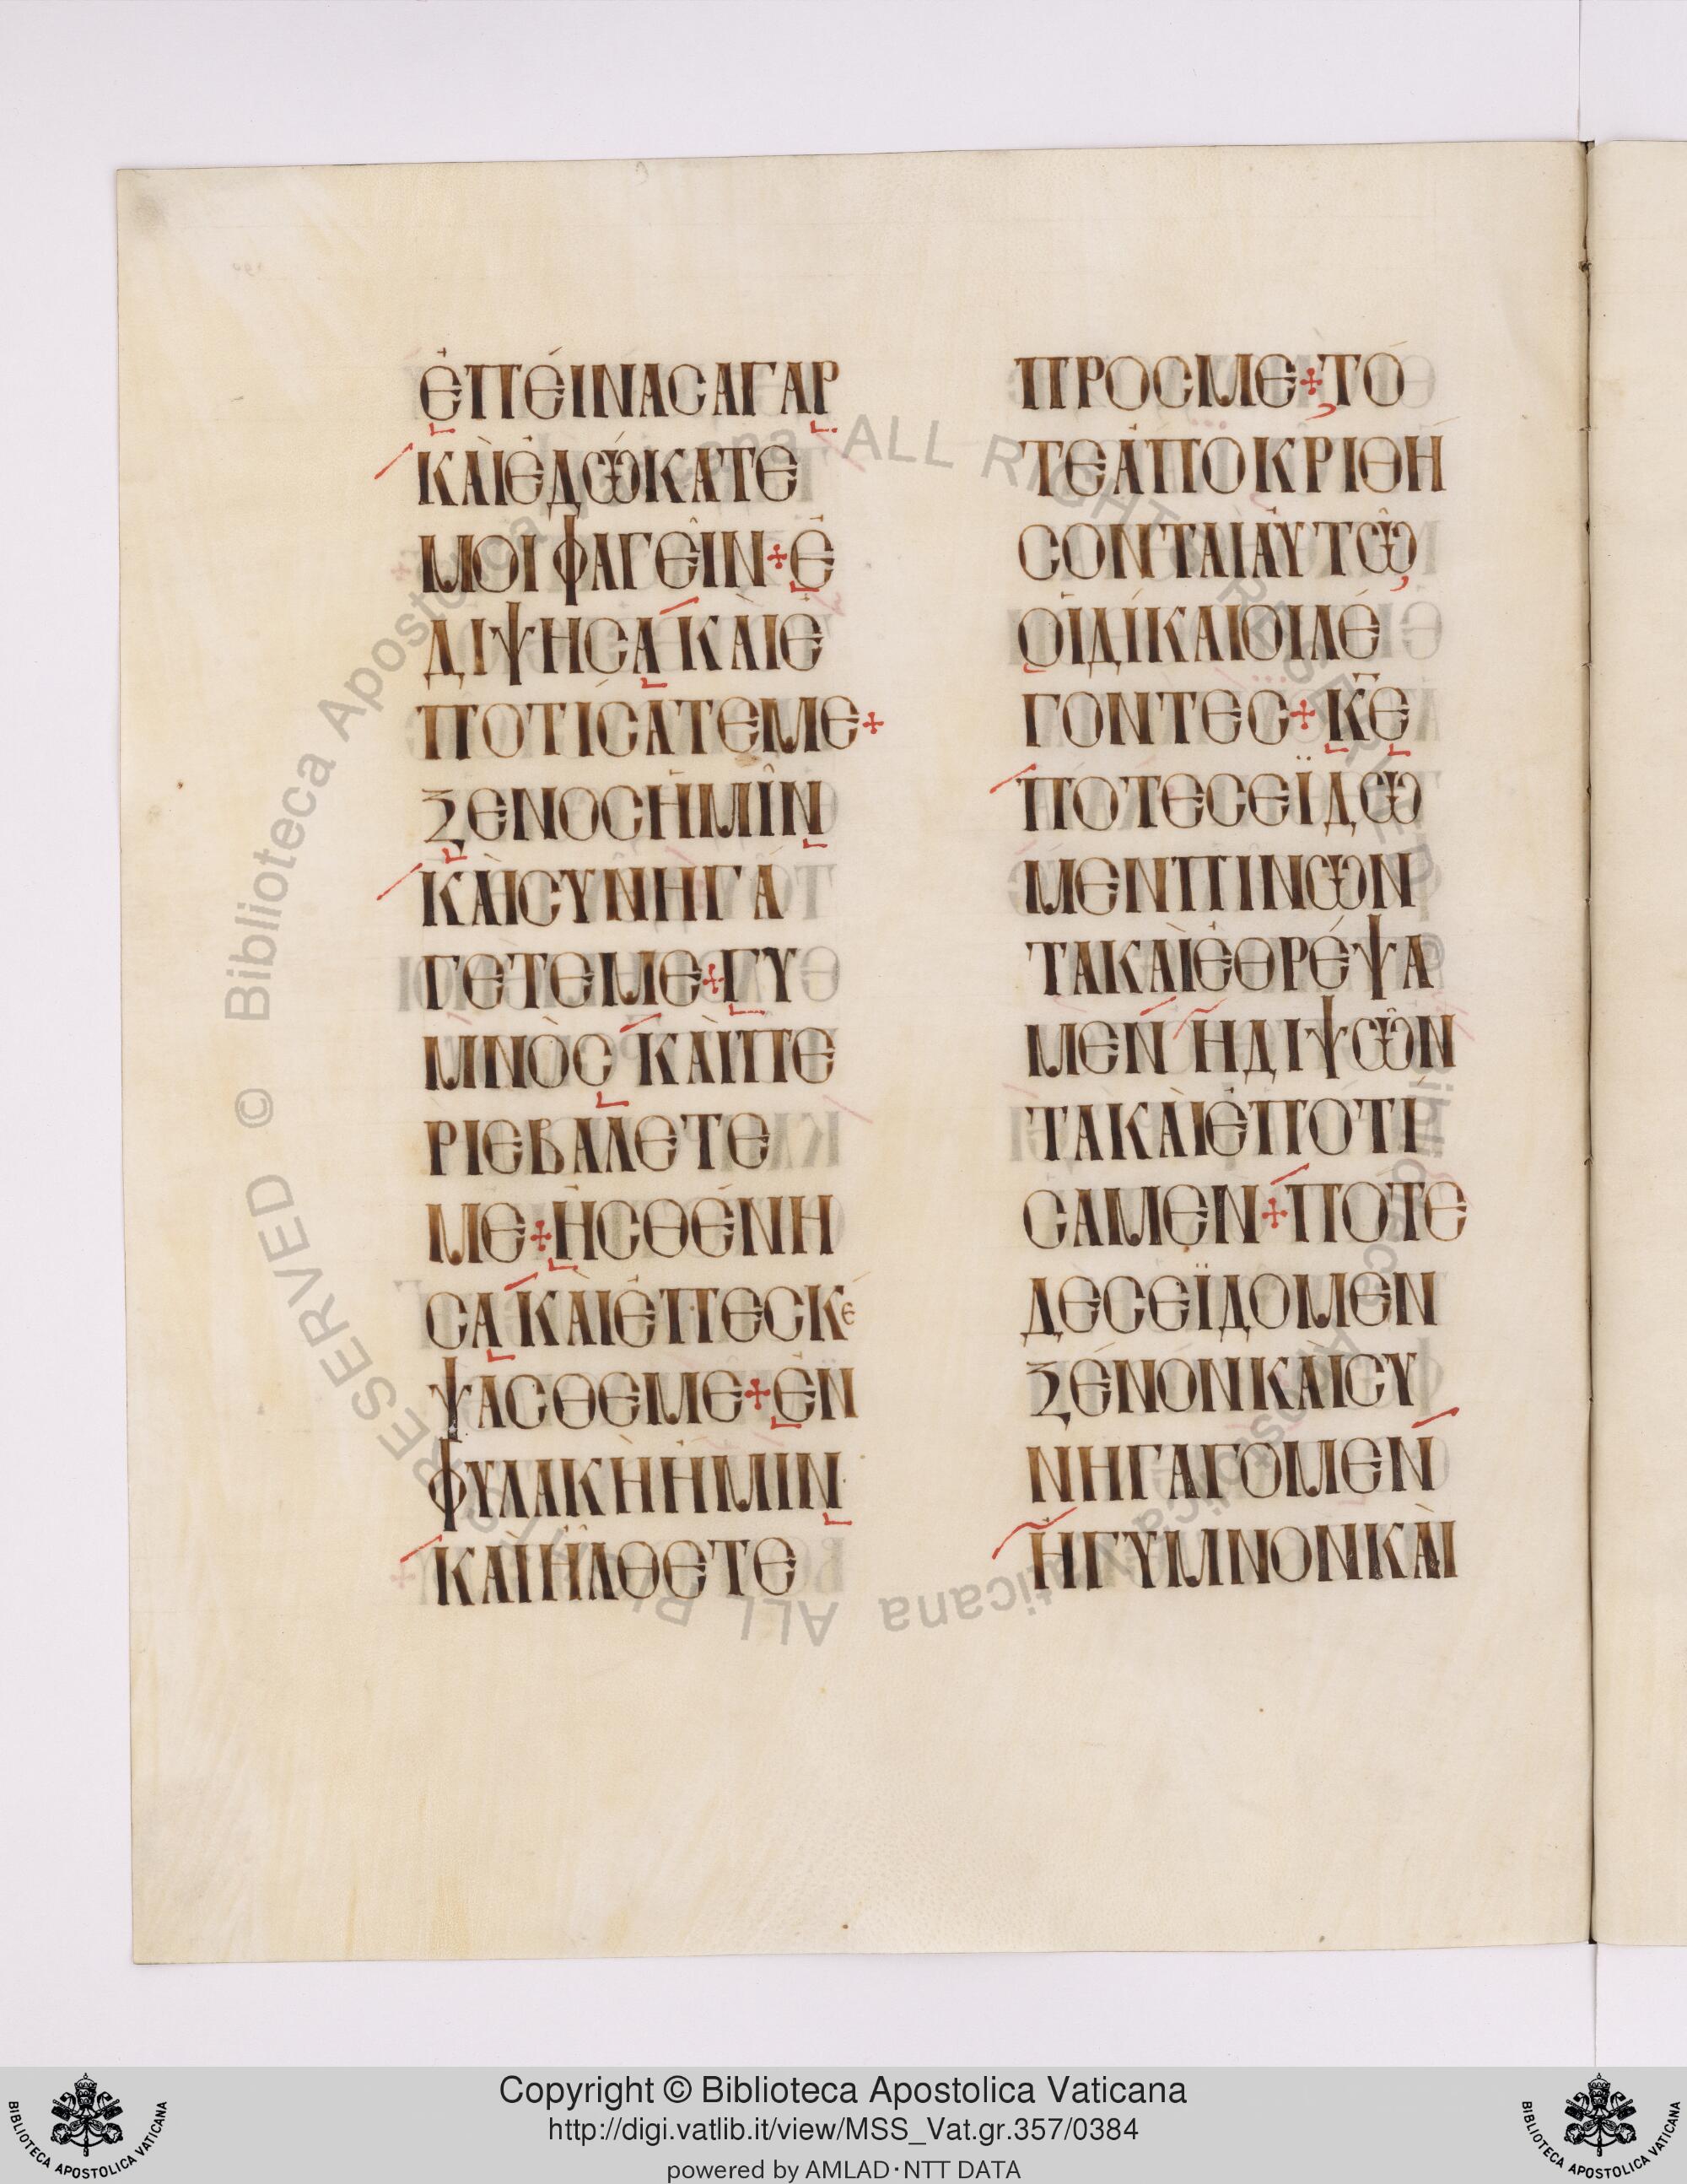 ἐπείνασαγαρ
κὰιἐδώκατε
μοιφαγεῖν+ἐ
διψησὰκὰιἐ
ποτίσατεμε+
ξενοσἤμῖν
κὰισυνηγά
γετεμε+γυ
μνὸσκὰιπε
ριεβαλετε
με+ἠσθένη
σακὰιἐπεσκέ
ψασθεμε+ἐν
φυλακῆἤμιν·
καιἤλθετε
προσμε+τό
τεἀποκριθή
σονταιἀυτῶ
ὁιδίκαιοιλέ
γοντεσ+κ̅ε̅
ποτεσεϊδω
μενπινῶν
τακὰιἐθρέψα
μενἠδιψῶν
τακὰιἐποτί
σαμεν+ποτε
δέσεϊδομεν
ξένόνκὰισυ
νηγάγομεν
ἠγυμνονκὰι
© Biblioteca Apostolica Vaticana ALL RIGHTS RESERVED
© Biblioteca Apostolica Vaticana ALL RIGHTS RESERVED
Copyright © Biblioteca Apostolica Vaticana
http://digi.vatlib.it/view/MSS_Vat.gr.357/0384
powered by AMLAD·NTT DATA
BIBLIOTECA APOSTOLICA VATICANA
BIBLIOTECA APOSTOLICA VATICANA